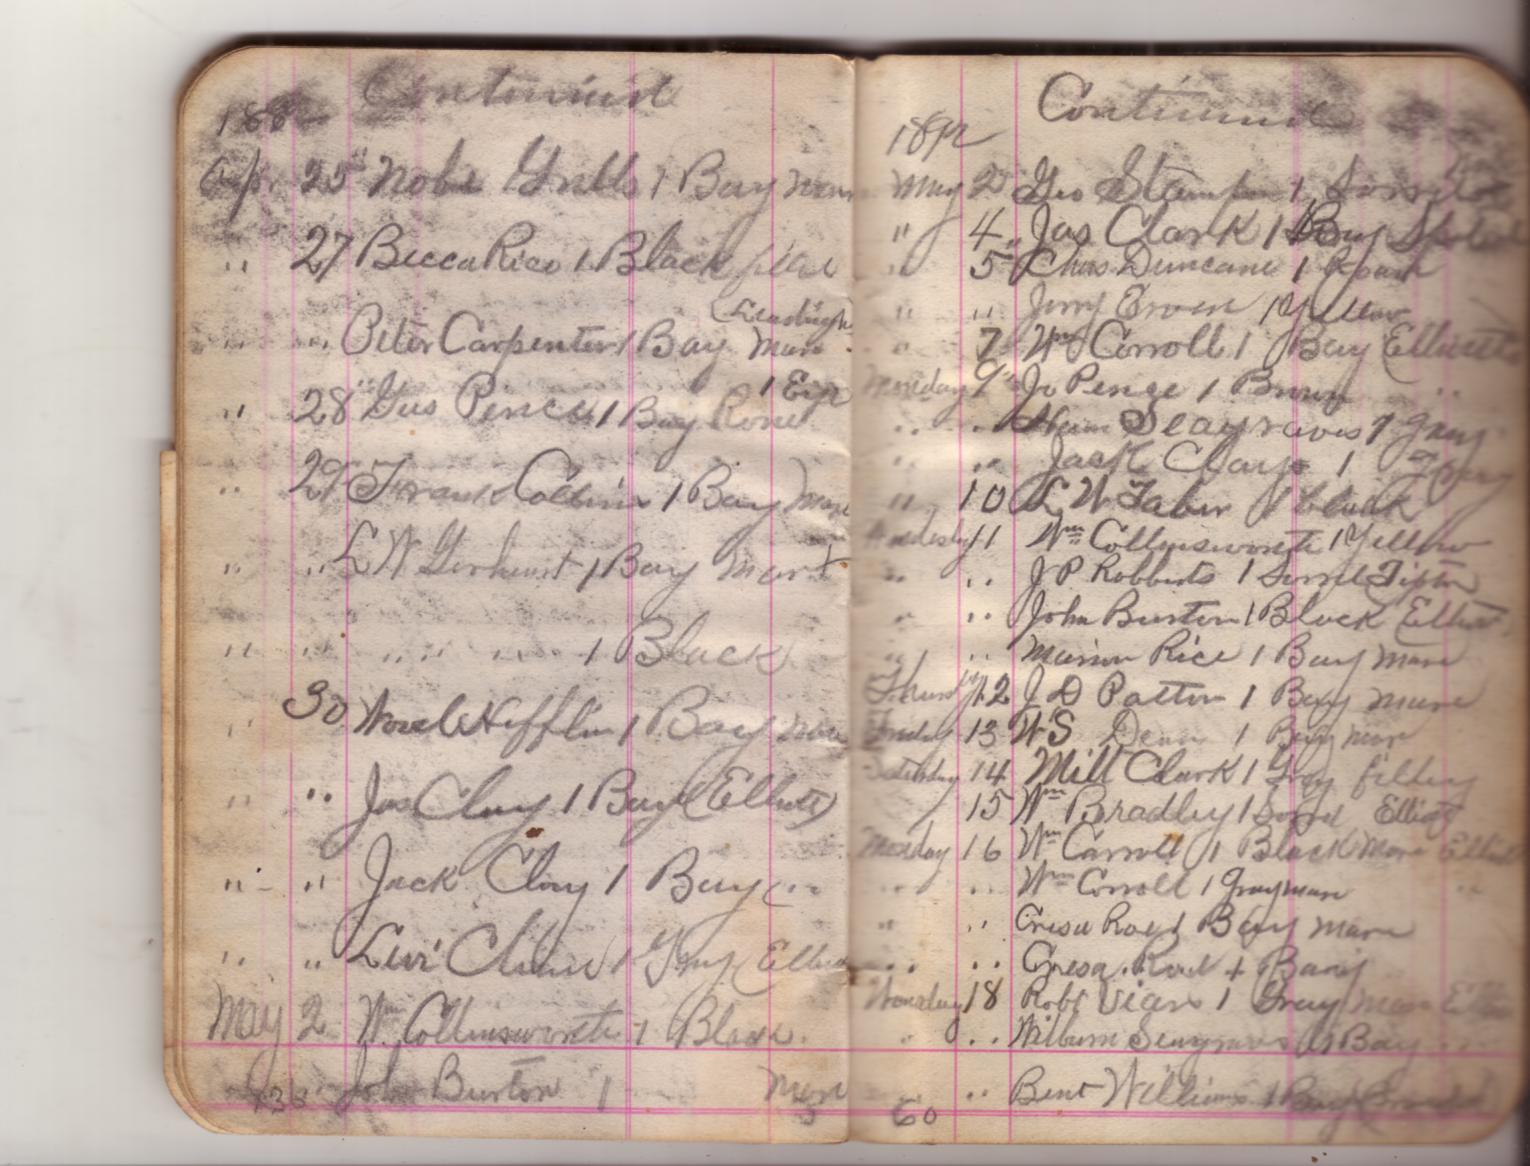 Continued
188
Apr 25" Nobe Grills 1 Bay mare
" 27 Becca Rice 1 Black filae
" " Peter Carpenter 1 Bay Mare
" 28" Gus Pence 1 Bay Rone
" 29 Frank Collins 1 Bay Mare
" " L W Gerheart 1 Bay Mare
" " " " " 1 Black
" 30 Hefflin 1 Bay
" " Jas Clay 1 Bay (Elliott)
" " Jack Clay 1 Bay ( "
" " Levi Cline 1 Gray (Elliott
May 2 Wm Collinsworth 1 Black
John Burton 1 Mare
Continued
1892
May 2 Geo Stamper 1 Sorrel
" 4 " Jas Clark 1 Bay
" 5 Chas Duncane 1 Roan
" " Jerry Erven 1 Yellow
" 7 Wm Corroll 1 Bay Elliott
Monday 9" Jo Penge 1 Brown "
" " Seagraves 1 Gray
" " Jack Clay 1 Gray
" 10 L W Taber 1 black
11 Wm Collinsworth 1 Yellow
" " J P Robberts 1 Sorrel Tipton
" John Burton 1 Black Elliott
" " Marion Rice 1 Bay Mare
Thursday 12 J D Patton 1 Bay Mare
Friday 13 W S Dean 1 Bay mar
Saterday 14 Milt Clark 1 Gray filley
15 Wm Bradley 1 Sorrel Elliott
Monday 16 Wm Carroll 1 Black Mare Elliott
" " Wm Corroll 1 Gray mare "
" Cresa Roe 1 Bay Mare
" " Cresa Roe 1 Bay
18 Robt Viars 1 Gray Mare
" " Wilburn Seagraves 1 Bay
60 " Bent Williams 1 Bay